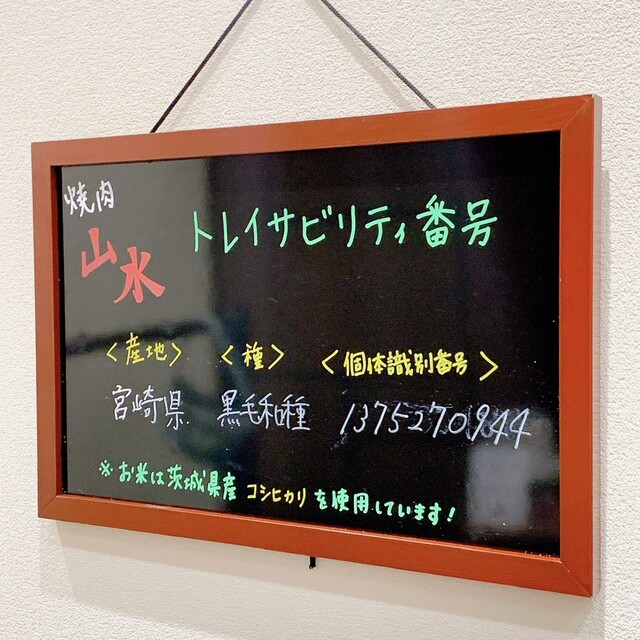 焼肉
山水
トレイサビリティ番号
<産地> <種> <個体識別番号>
宮崎県 黒毛和種 1375270944
※お米は茨城県産 コシヒカリ を使用しています!